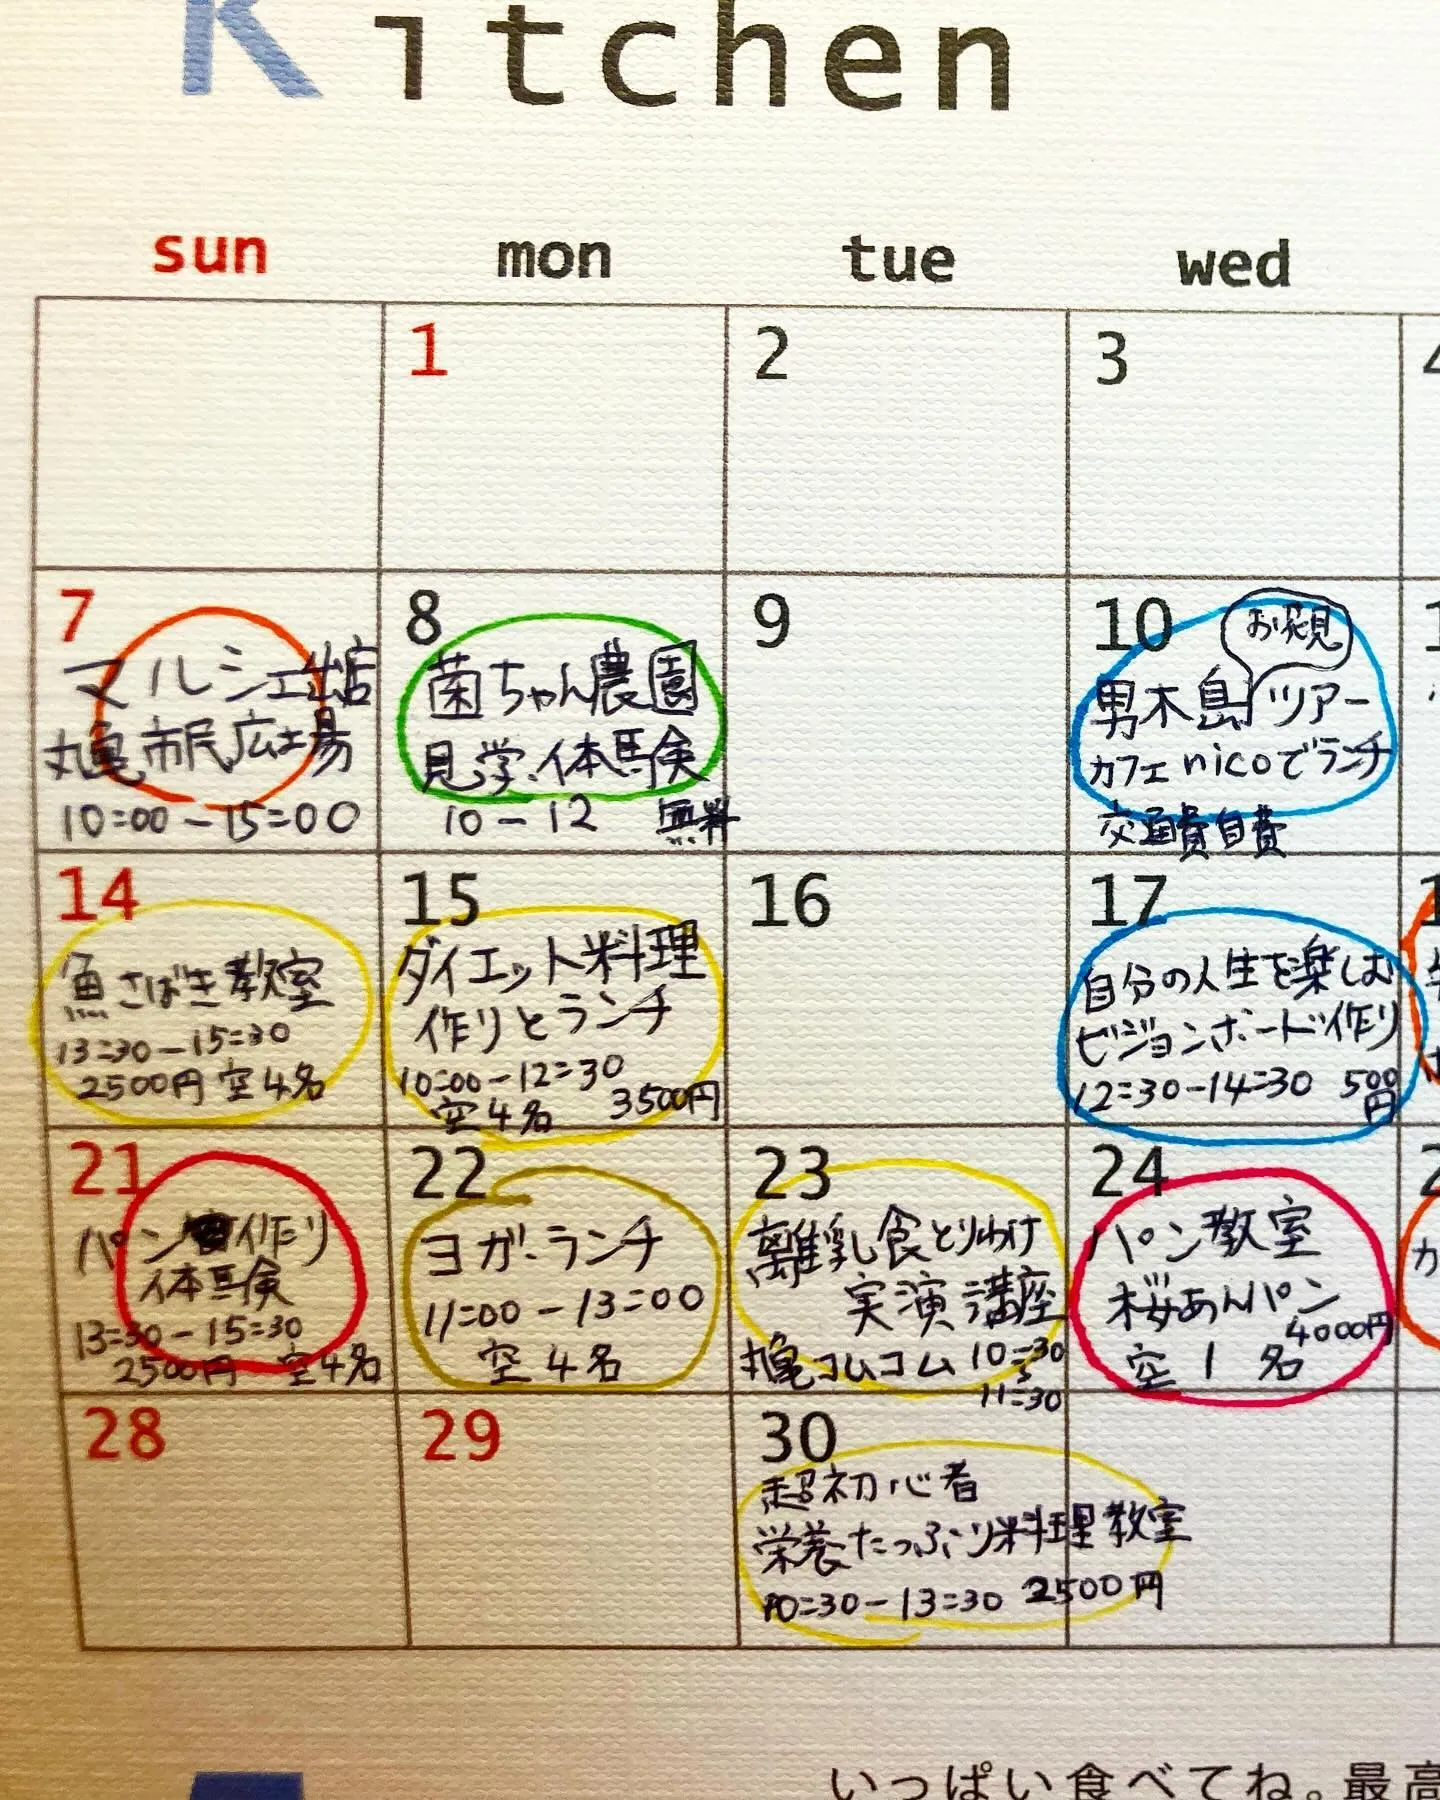 Kitchen
sun mon tue wed
1 2 3 4
7
マルシェ出店
丸亀市民広場
10:00-15:00
8
菌ちゃん農園
見学、体験
10-12 無料
9
10
お花見
男木島ツアー
カフェnicoでランチ
交通費自費
14
魚さばき教室
13:30-15:30
2500円 空4名
15
ダイエット料理
作りとランチ
10:00-12:30
空4名 3500円
16
17
自分の人生を楽しむ
ビジョンボード作り
12:30-14:30 500円
21
パン作り
体験
13:30-15:30
2500円 空4名
22
ヨガ、ランチ
11:00-13:00
空4名
23
離乳食とりわけ
実演講座
丸亀コムコム 10:30
~
11:30
24
パン教室
桜あんパン
4000円
空1名
28 29
30
超初心者
栄養たっぷり料理教室
10:30-13:30 2500円
いっぱい食べてね。最高